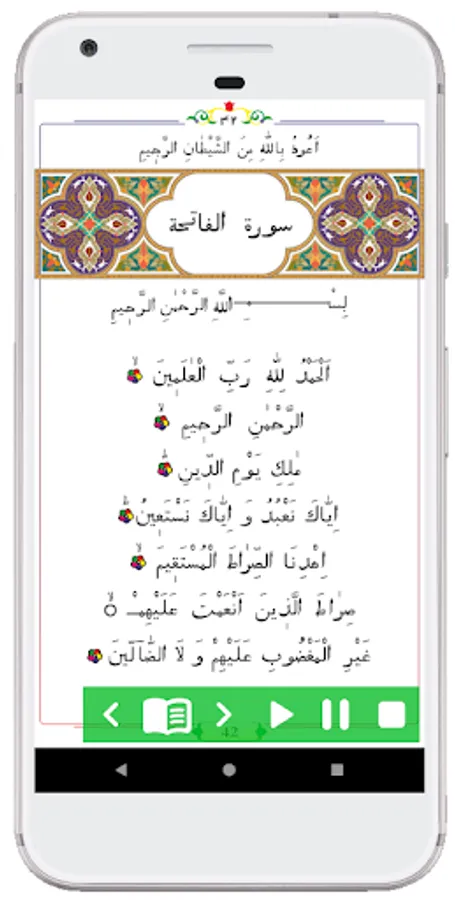 اَعُوذُ بِاللّٰهِ مِنَ الشَّيْطَانِ الرَّجٖيمِ
سورة الفاتحة
بِسْــــــمِ اللّٰهِ الرَّحْمٰنِ الرَّحٖيمِ
اَلْحَمْدُ لِلّٰهِ رَبِّ الْعَالَمٖينَ ۙ
اَلرَّحْمٰنِ الرَّحٖيمِ ۙ
مَالِكِ يَوْمِ الدّٖينِ ۜ
اِيَّاكَ نَعْبُدُ وَ اِيَّاكَ نَسْتَعٖينُ ۜ
اِهْدِنَا الصِّرَاطَ الْمُسْتَقٖيمَ ۙ
صِرَاطَ الَّذٖينَ اَنْعَمْتَ عَلَيْهِمْ ۙ ه
غَيْرِ الْمَغْضُوبِ عَلَيْهِمْ وَ لَا الضَّٓالّٖينَ
42